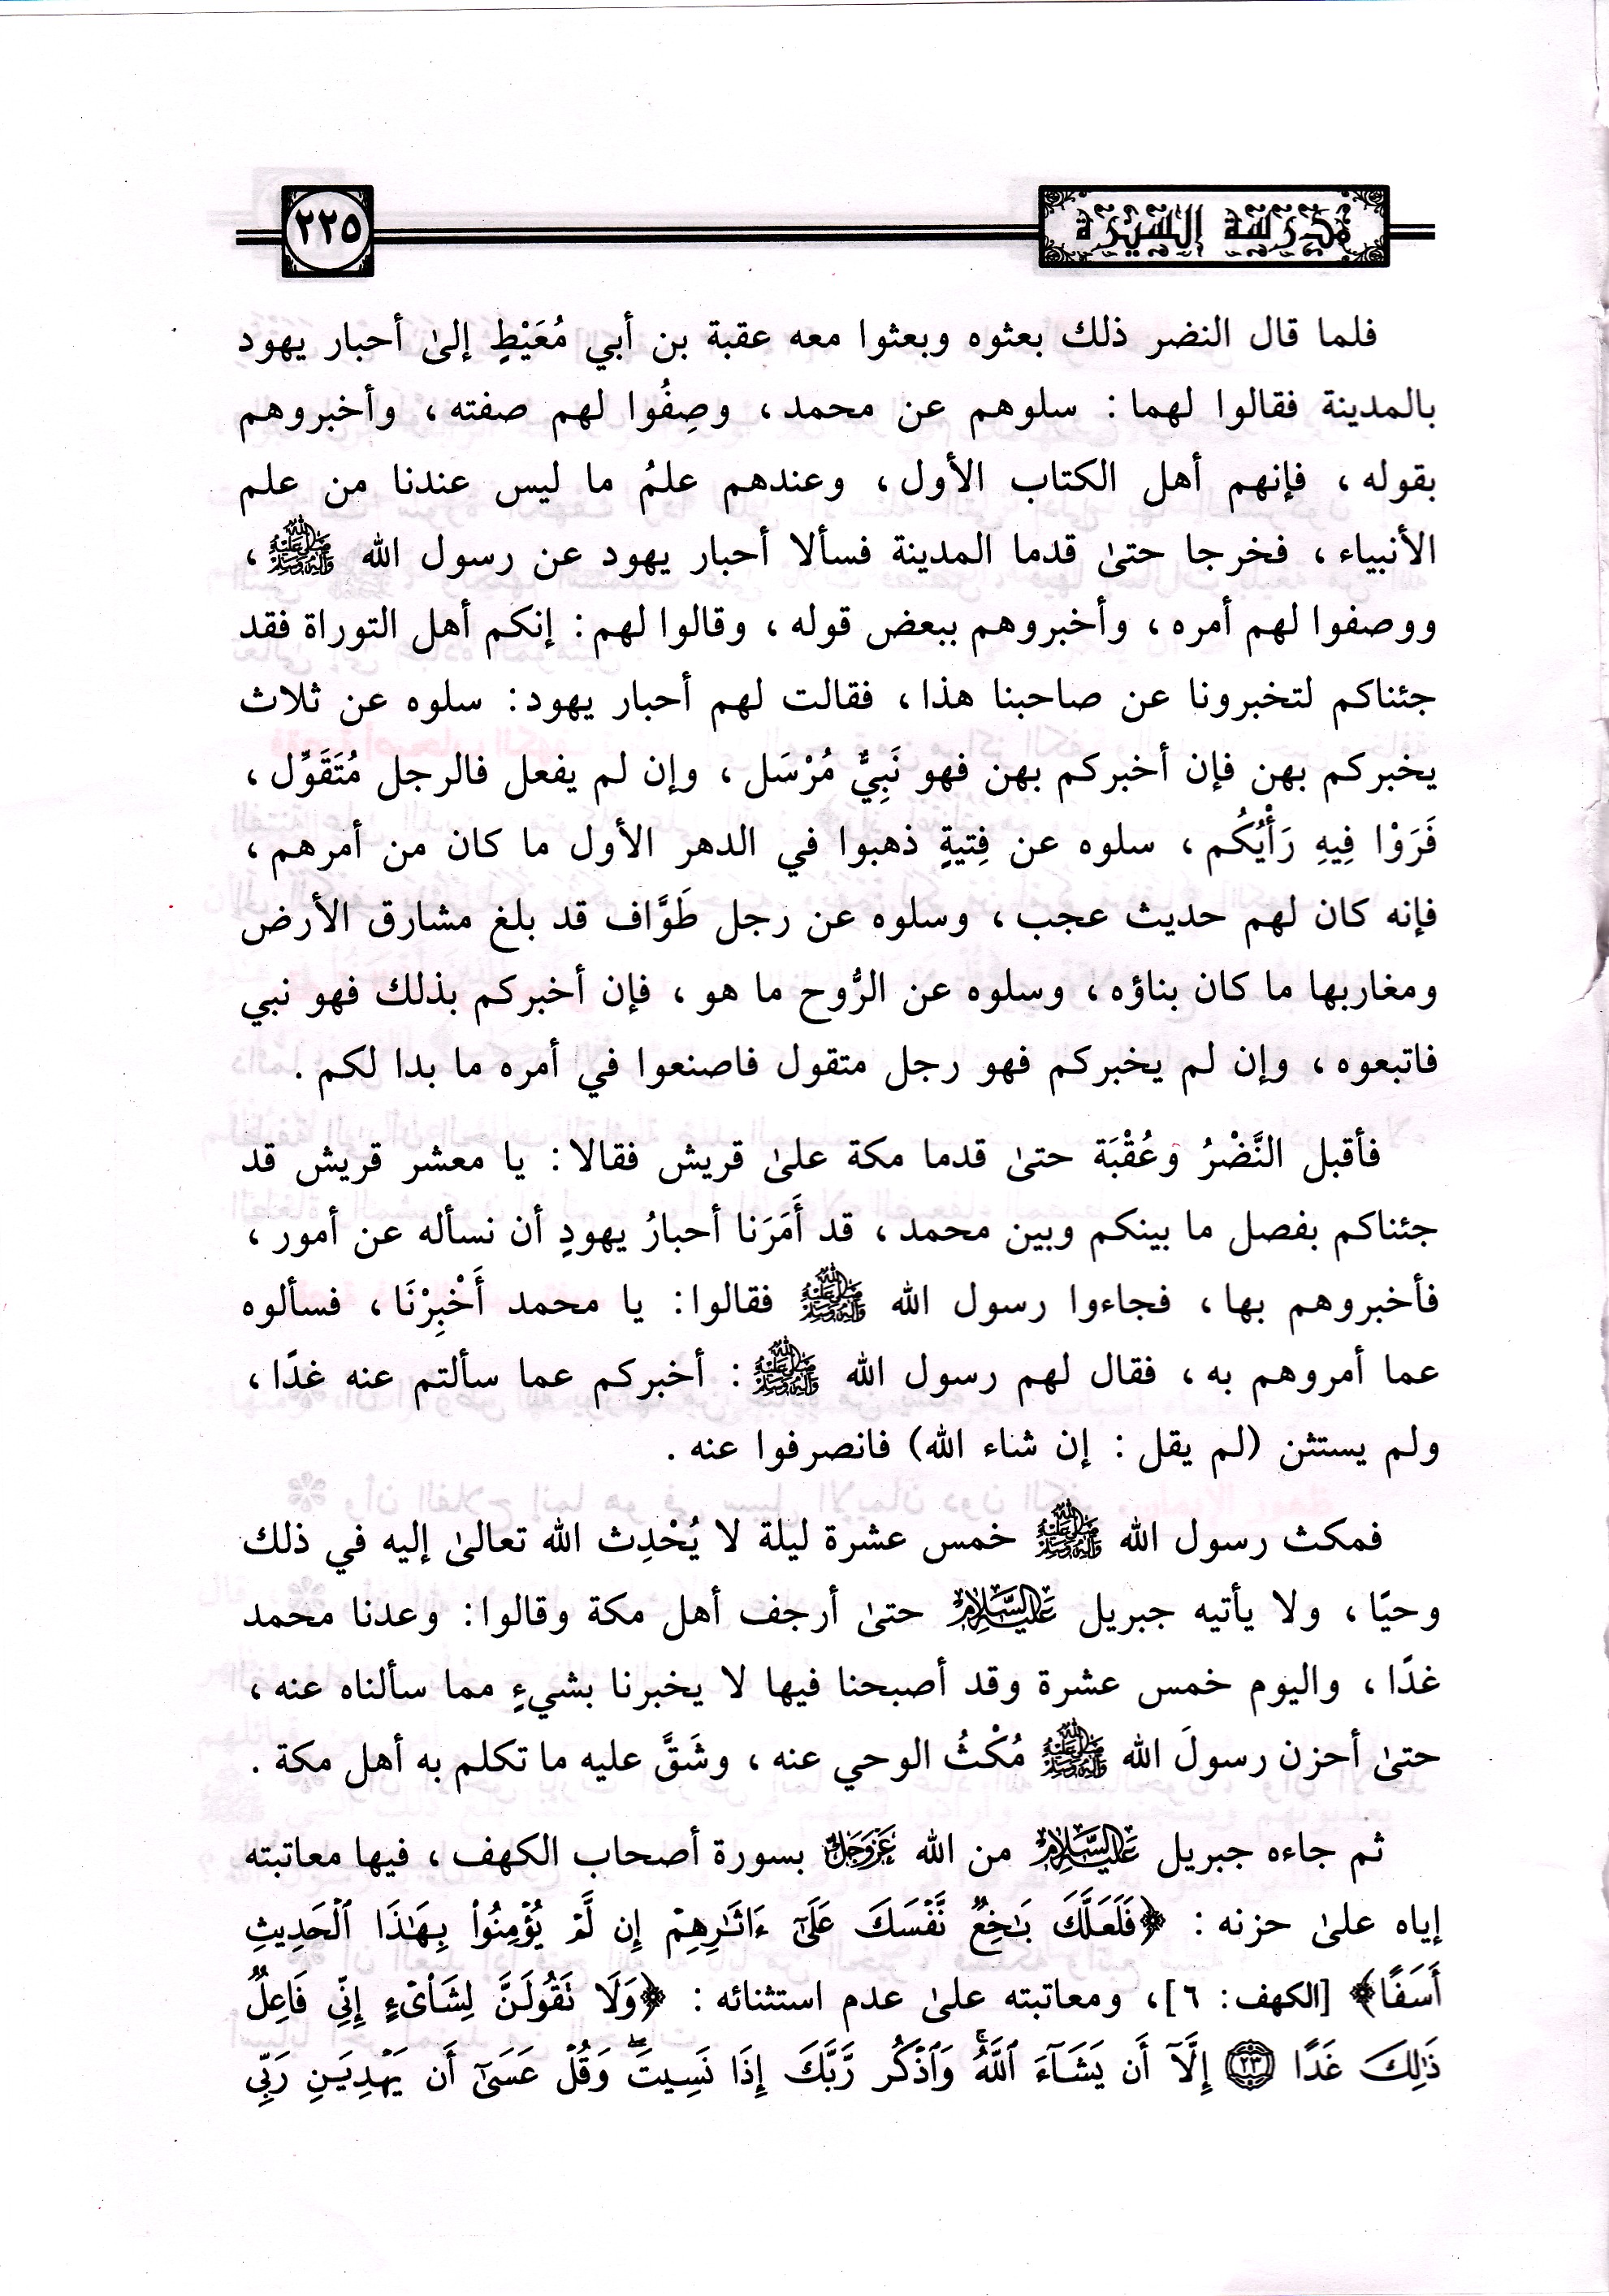 مدرسة السيرة
٢٢٥
فلما قال النضر ذلك بعثوه وبعثوا معه عقبة بن أبي مُعَيْطٍ إلىٰ أحبار يهود
بالمدينة فقالوا لهما: سلوهم عن محمد، وصِفُوا لهم صفته، وأخبروهم
بقوله، فإنهم أهل الكتاب الأول، وعندهم علمُ ما ليس عندنا من علم
الأنبياء، فخرجا حتىٰ قدما المدينة فسألا أحبار يهود عن رسول الله ﷺ،
ووصفوا لهم أمره، وأخبروهم ببعض قوله، وقالوا لهم: إنكم أهل التوراة فقد
جئناكم لتخبرونا عن صاحبنا هذا، فقالت لهم أحبار يهود: سلوه عن ثلاث
يخبركم بهن فإن أخبركم بهن فهو نَبِيٌّ مُرْسَل، وإن لم يفعل فالرجل مُتَقَوِّل،
فَرَوْا فِيهِ رَأْيُكُم، سلوه عن فِتيةٍ ذهبوا في الدهر الأول ما كان من أمرهم،
فإنه كان لهم حديث عجب، وسلوه عن رجل طَوَّاف قد بلغ مشارق الأرض
ومغاربها ما كان بناؤه، وسلوه عن الرُّوح ما هو، فإن أخبركم بذلك فهو نبي
فاتبعوه، وإن لم يخبركم فهو رجل متقول فاصنعوا في أمره ما بدا لكم.
فأقبل النَّضْرُ وعُقْبَة حتىٰ قدما مكة علىٰ قريش فقالا: يا معشر قريش قد
جئناكم بفصل ما بينكم وبين محمد، قد أَمَرَنا أحبارُ يهودٍ أن نسأله عن أمور،
فأخبروهم بها، فجاءوا رسول الله ﷺ فقالوا: يا محمد أَخْبِرْنَا، فسألوه
عما أمروهم به، فقال لهم رسول الله ﷺ: أخبركم عما سألتم عنه غدًا،
ولم يستثن (لم يقل: إن شاء الله) فانصرفوا عنه.
فمكث رسول الله ﷺ خمس عشرة ليلة لا يُحْدِث الله تعالىٰ إليه في ذلك
وحيًا، ولا يأتيه جبريل عَلَيْهِ السَّلَام حتىٰ أرجف أهل مكة وقالوا: وعدنا محمد
غدًا، واليوم خمس عشرة وقد أصبحنا فيها لا يخبرنا بشيءٍ مما سألناه عنه،
حتىٰ أحزن رسولَ الله ﷺ مُكْثُ الوحي عنه، وشَقَّ عليه ما تكلم به أهل مكة.
ثم جاءه جبريل عَلَيْهِ السَّلَام من الله عَزَّ وَجَلَّ بسورة أصحاب الكهف، فيها معاتبته
إياه علىٰ حزنه: ﴿فَلَعَلَّكَ بَٰخِعٌ نَّفْسَكَ عَلَىٰٓ ءَاثَٰرِهِمْ إِن لَّمْ يُؤْمِنُوا۟ بِهَٰذَا ٱلْحَدِيثِ
أَسَفًا﴾ [الكهف: ٦]، ومعاتبته علىٰ عدم استثنائه: ﴿وَلَا تَقُولَنَّ لِشَا۟ىْءٍ إِنِّى فَاعِلٌ
ذَٰلِكَ غَدًا ٢٣ إِلَّآ أَن يَشَآءَ ٱللَّهُ ۚ وَٱذْكُر رَّبَّكَ إِذَا نَسِيتَ وَقُلْ عَسَىٰٓ أَن يَهْدِيَنِ رَبِّى